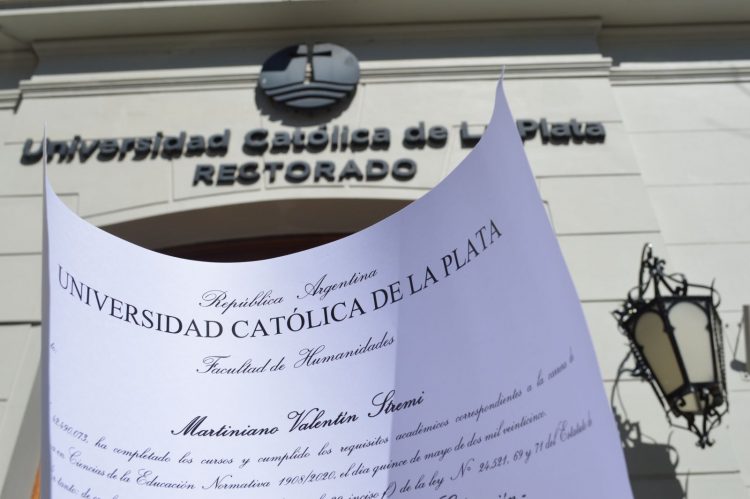 Universidad Católica de La Plata
RECTORADO
República Argentina
UNIVERSIDAD CATÓLICA DE LA PLATA
Facultad de Humanidades
Martiniano Valentín Stremi
42.490.073, ha completado los cursos y cumplido los requisitos académicos correspondientes a la carrera de
en Ciencias de la Educación Normativa 1908/2020, el día quince de mayo de dos mil veinticinco.
tanto: de inciso f) de la ley N° 24.521, 69 y 71 del Estatuto de